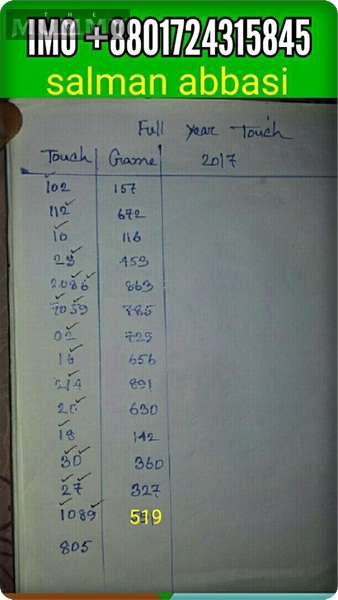 IMO +8801724315845
salman abbasi
Full year Touch
Touch Game 2017
102 157
112 672
10 116
29 453
2086 863
7059 785
02 729
16 656
214 891
26 630
18 142
30 360
27 327
1089 519
805